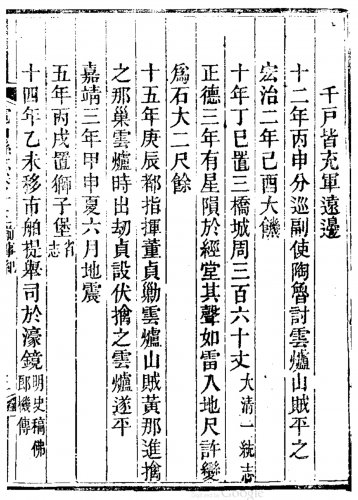 千戸皆充軍遠邊
十二年丙申分巡副使陶魯討雲爐山賊平之
宏治二年己酉大饑
十年丁巳置三橋城周三百六十丈大清一統志
正德三年有星隕於經堂其聲如雷入地尺許變
爲石大二尺餘
十五年庚辰都指揮董貞勦雲爐山賊黃那進擒
之那巢雲爐時出刼貞設伏擒之雲爐遂平
嘉靖三年甲申夏六月地震
五年丙戌置獅子堡省志
十四年乙未移市舶提舉司於濠鏡明史稿佛郎機傳